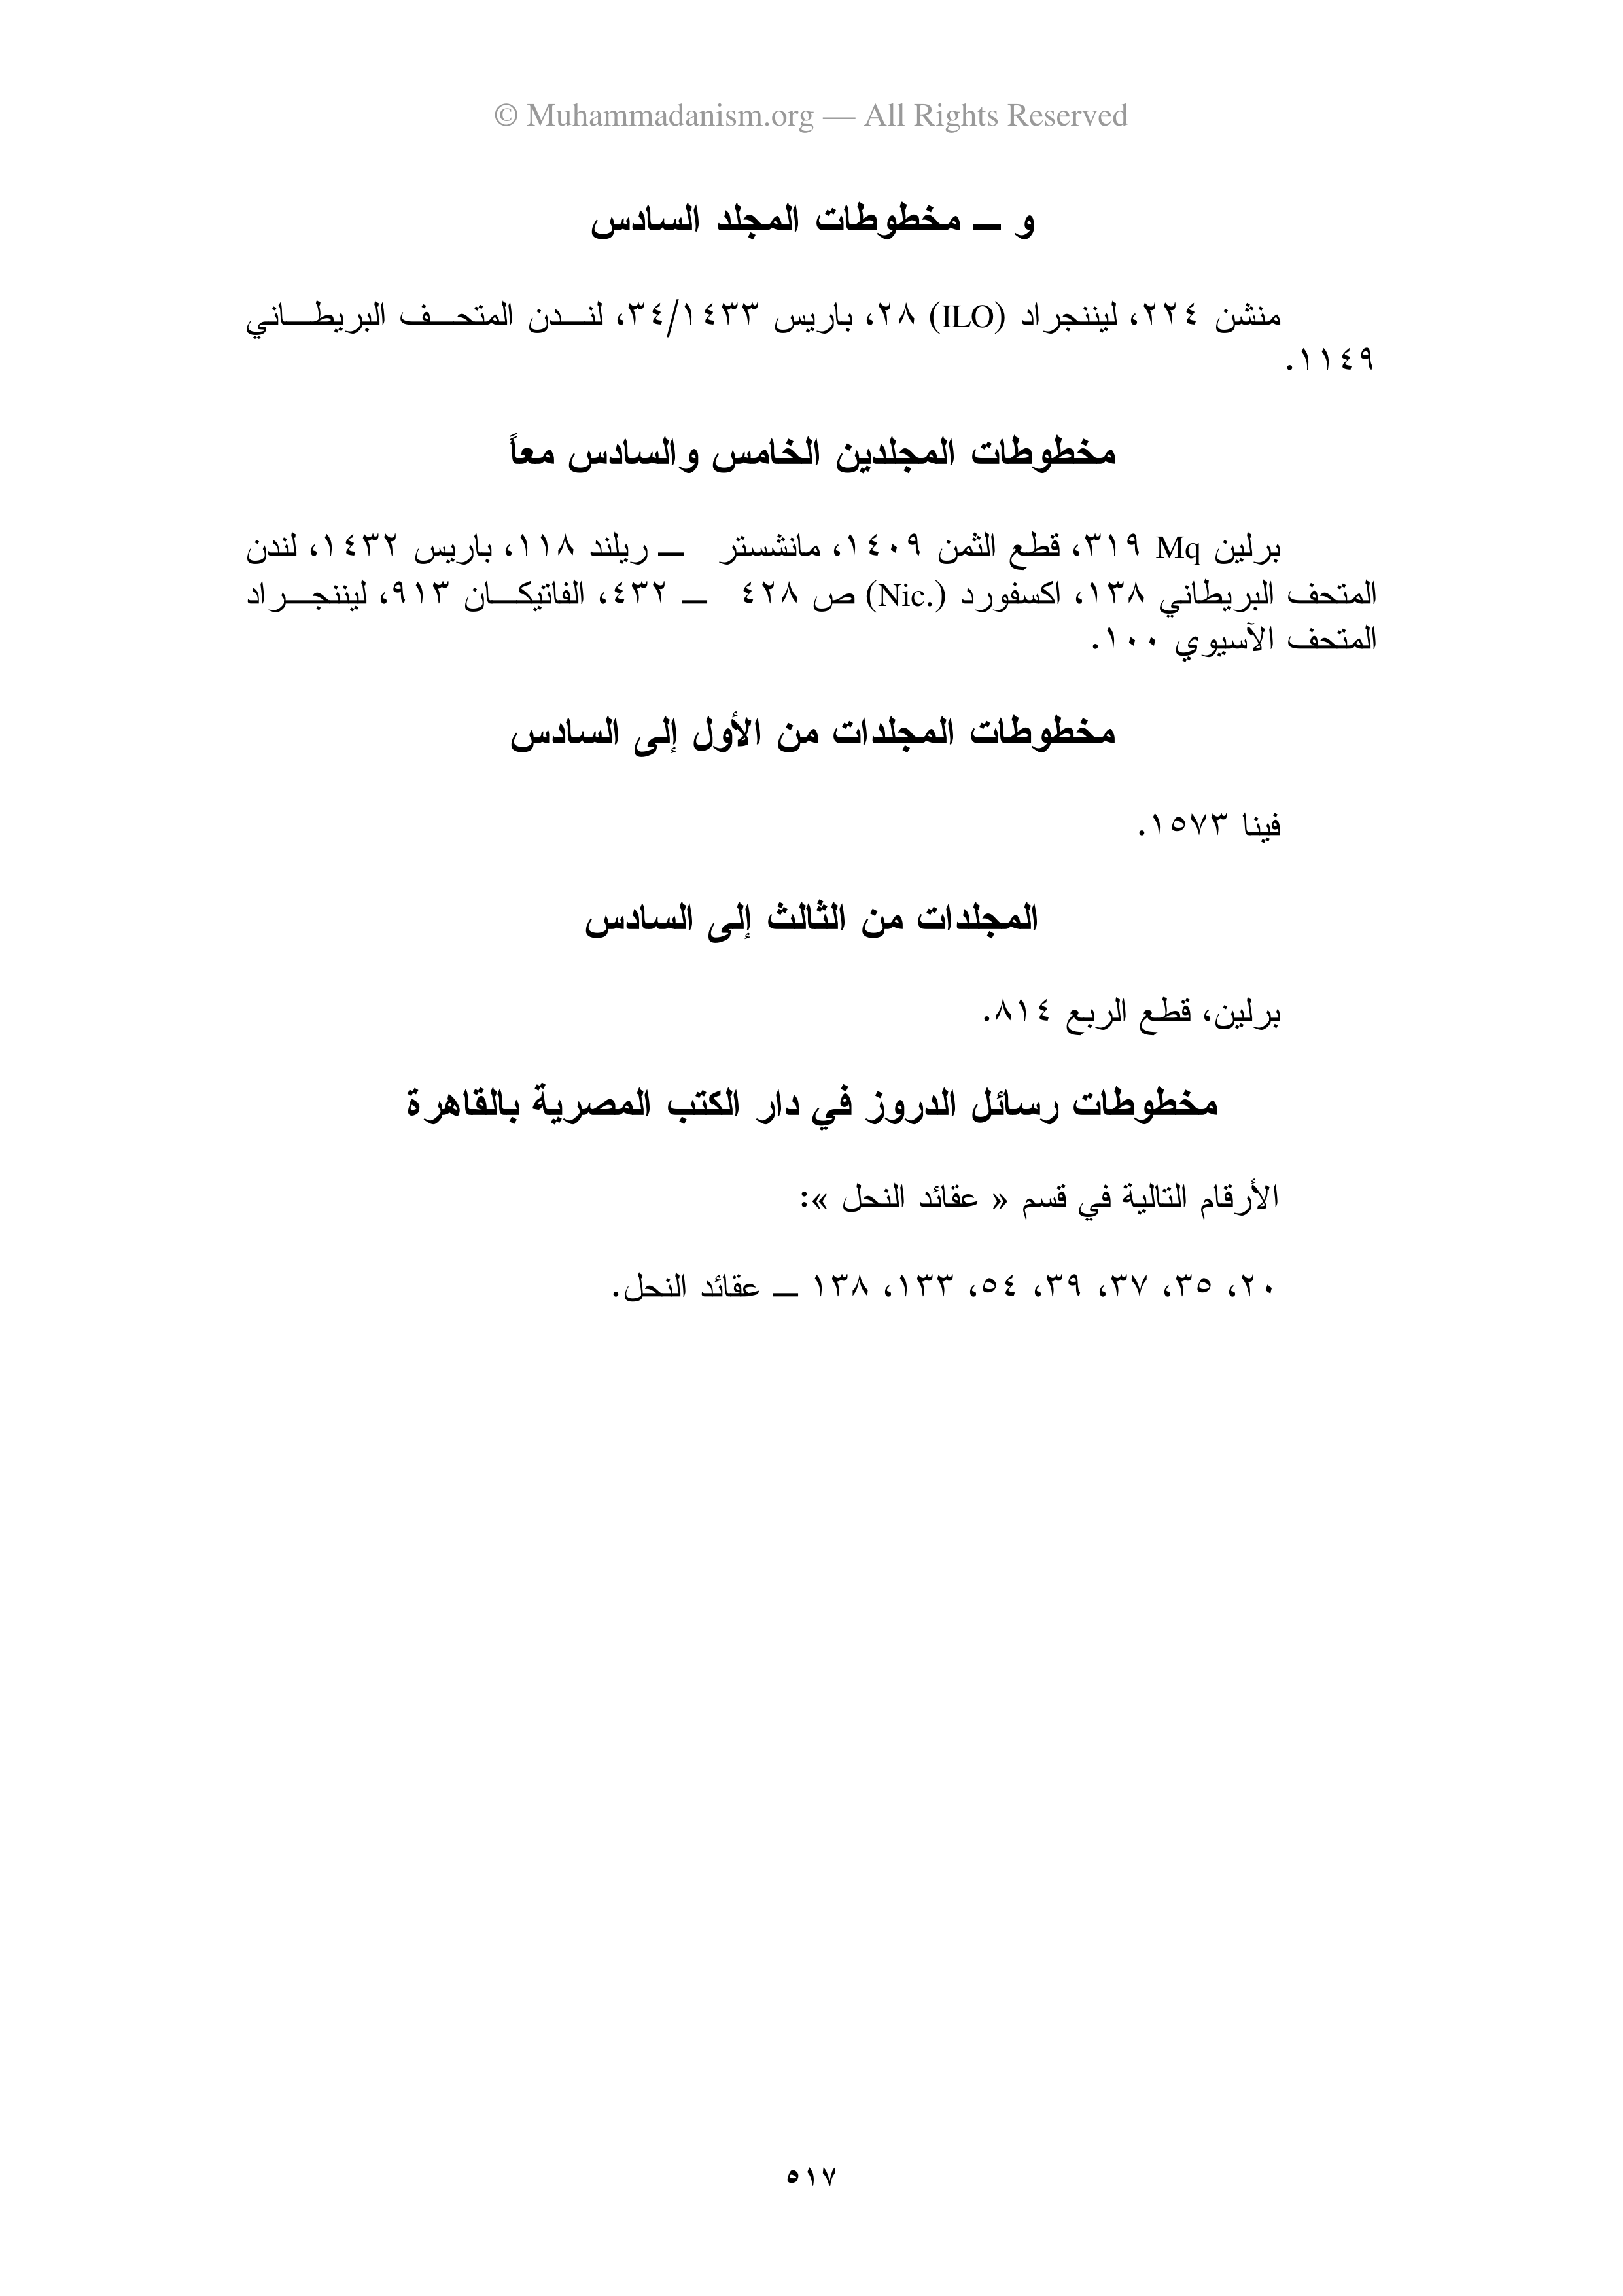 © Muhammadanism.org — All Rights Reserved
و ـــ مخطوطات المجلد السادس
منشن ٢٢٤، ليننجراد (ILO) ٢٨، باريس ٣٤/١٤٣٣، لنـــدن المتحـــف البريطـــاني
١١٤٩.
مخطوطات المجلدين الخامس والسادس معاً
برلين Mq ٣١٩، قطع الثمن ١٤٠٩، مانشستر ـــ ريلند ١١٨، باريس ١٤٣٢، لندن
المتحف البريطاني ١٣٨، اكسفورد (Nic.) ص ٤٢٨ ـــ ٤٣٢، الفاتيكـــان ٩١٣، ليننجـــراد
المتحف الآسيوي ١٠٠.
مخطوطات المجلدات من الأول إلى السادس
فينا ١٥٧٣.
المجلدات من الثالث إلى السادس
برلين، قطع الربع ٨١٤.
مخطوطات رسائل الدروز في دار الكتب المصرية بالقاهرة
الأرقام التالية في قسم « عقائد النحل »:
٢٠، ٣٥، ٣٧، ٣٩، ٥٤، ١٣٣، ١٣٨ ـــ عقائد النحل.
٥١٧